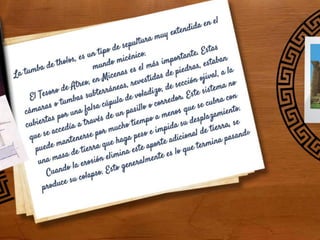 La tumba de tholos, es un tipo de sepultura muy extendida en el
mundo micénico.
El Tesoro de Atreo, en Micenas es el más importante. Estas
cámaras o tumbas subterráneas, revestidas de piedras, estaban
cubiertas por una falsa cúpula de voladizo, de sección ojival, a la
que se accedía a través de un pasillo o corredor. Este sistema no
puede mantenerse por mucho tiempo a menos que se cubra con
una masa de tierra que haga peso e impida su desplazamiento.
Cuando la erosión elimina este aporte adicional de tierra, se
produce su colapso. Esto generalmente es lo que termina pasando